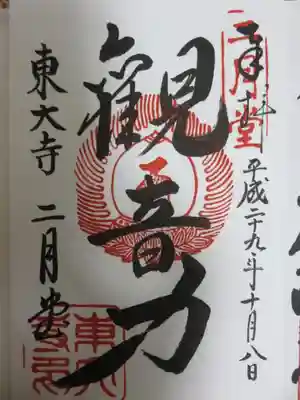 奉拝
二月堂
平成二十九年十月八日
観音力
東大寺 二月堂